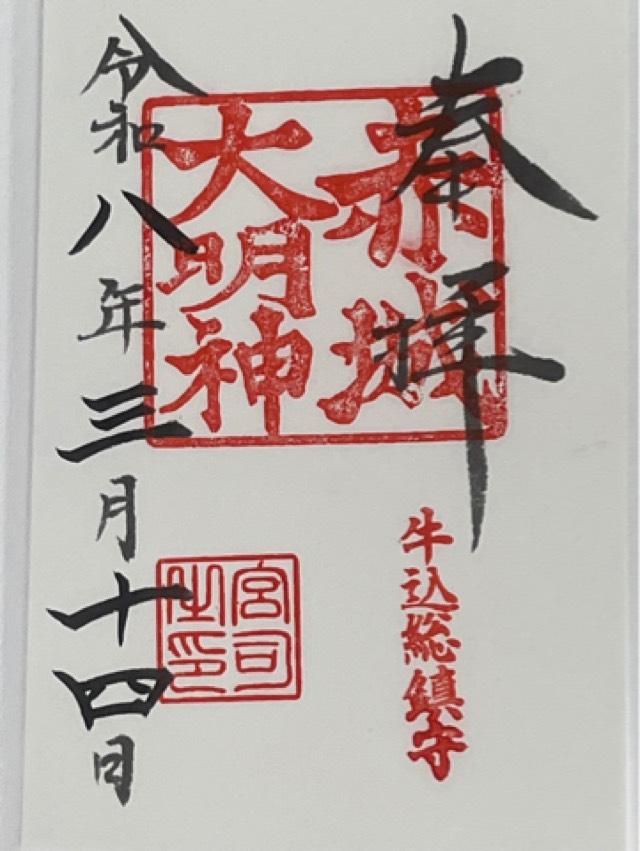 奉拝
赤城
大明神
牛込総鎮守
宮司
之印
令和八年三月十四日